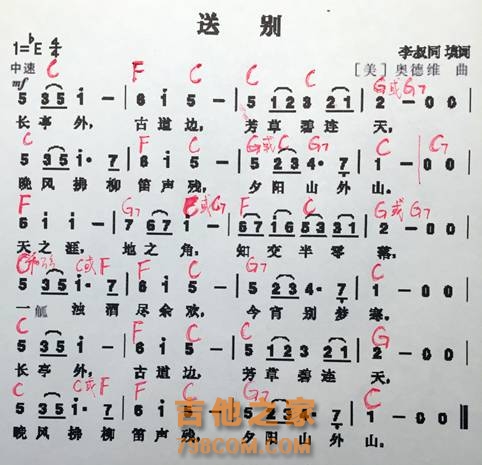 送 别
1=♭E 4/4
李叔同 填词
中速 C F C C G或G7
mf [美] 奥德维 曲
5 3 5 i - | 6 i 5 - | 5 1 2 3 2 1 | 2 - 0 0 |
长亭 外， 古道边， 芳草碧连 天，
C F C G或G7 C
5 3 5 i· 7 | 6 i 5 - | 5 2 3 4· 7 | 1 - 0 0 |
晚风 拂柳笛声残， 夕阳山外山。
F G7 G或G7
6 i i - | 7 6 7 i - | 6 7 i 6 6 5 3 1 | 2 - 0 0 |
天之涯， 地之角， 知交半零 落，
C或F F C G7 C
5 3 5 i· 7 | 6 i 5 - | 5 2 3 4· 7 | 1 - 0 0 |
一觚 浊酒尽余欢， 今宵别梦寒。
C F C C G
5 3 5 i - | 6 i 5 - | 5 1 2 3 2 1 | 2 - 0 0 |
长亭 外， 古道边， 芳草碧连 天，
C C或F F C G7 C
5 3 5 i· 7 | 6 i 5 - | 5 2 3 4· 7 | 1 - 0 0 ‖
晚风 拂柳笛声残， 夕阳山外山。
吉他之家
798COM.COM